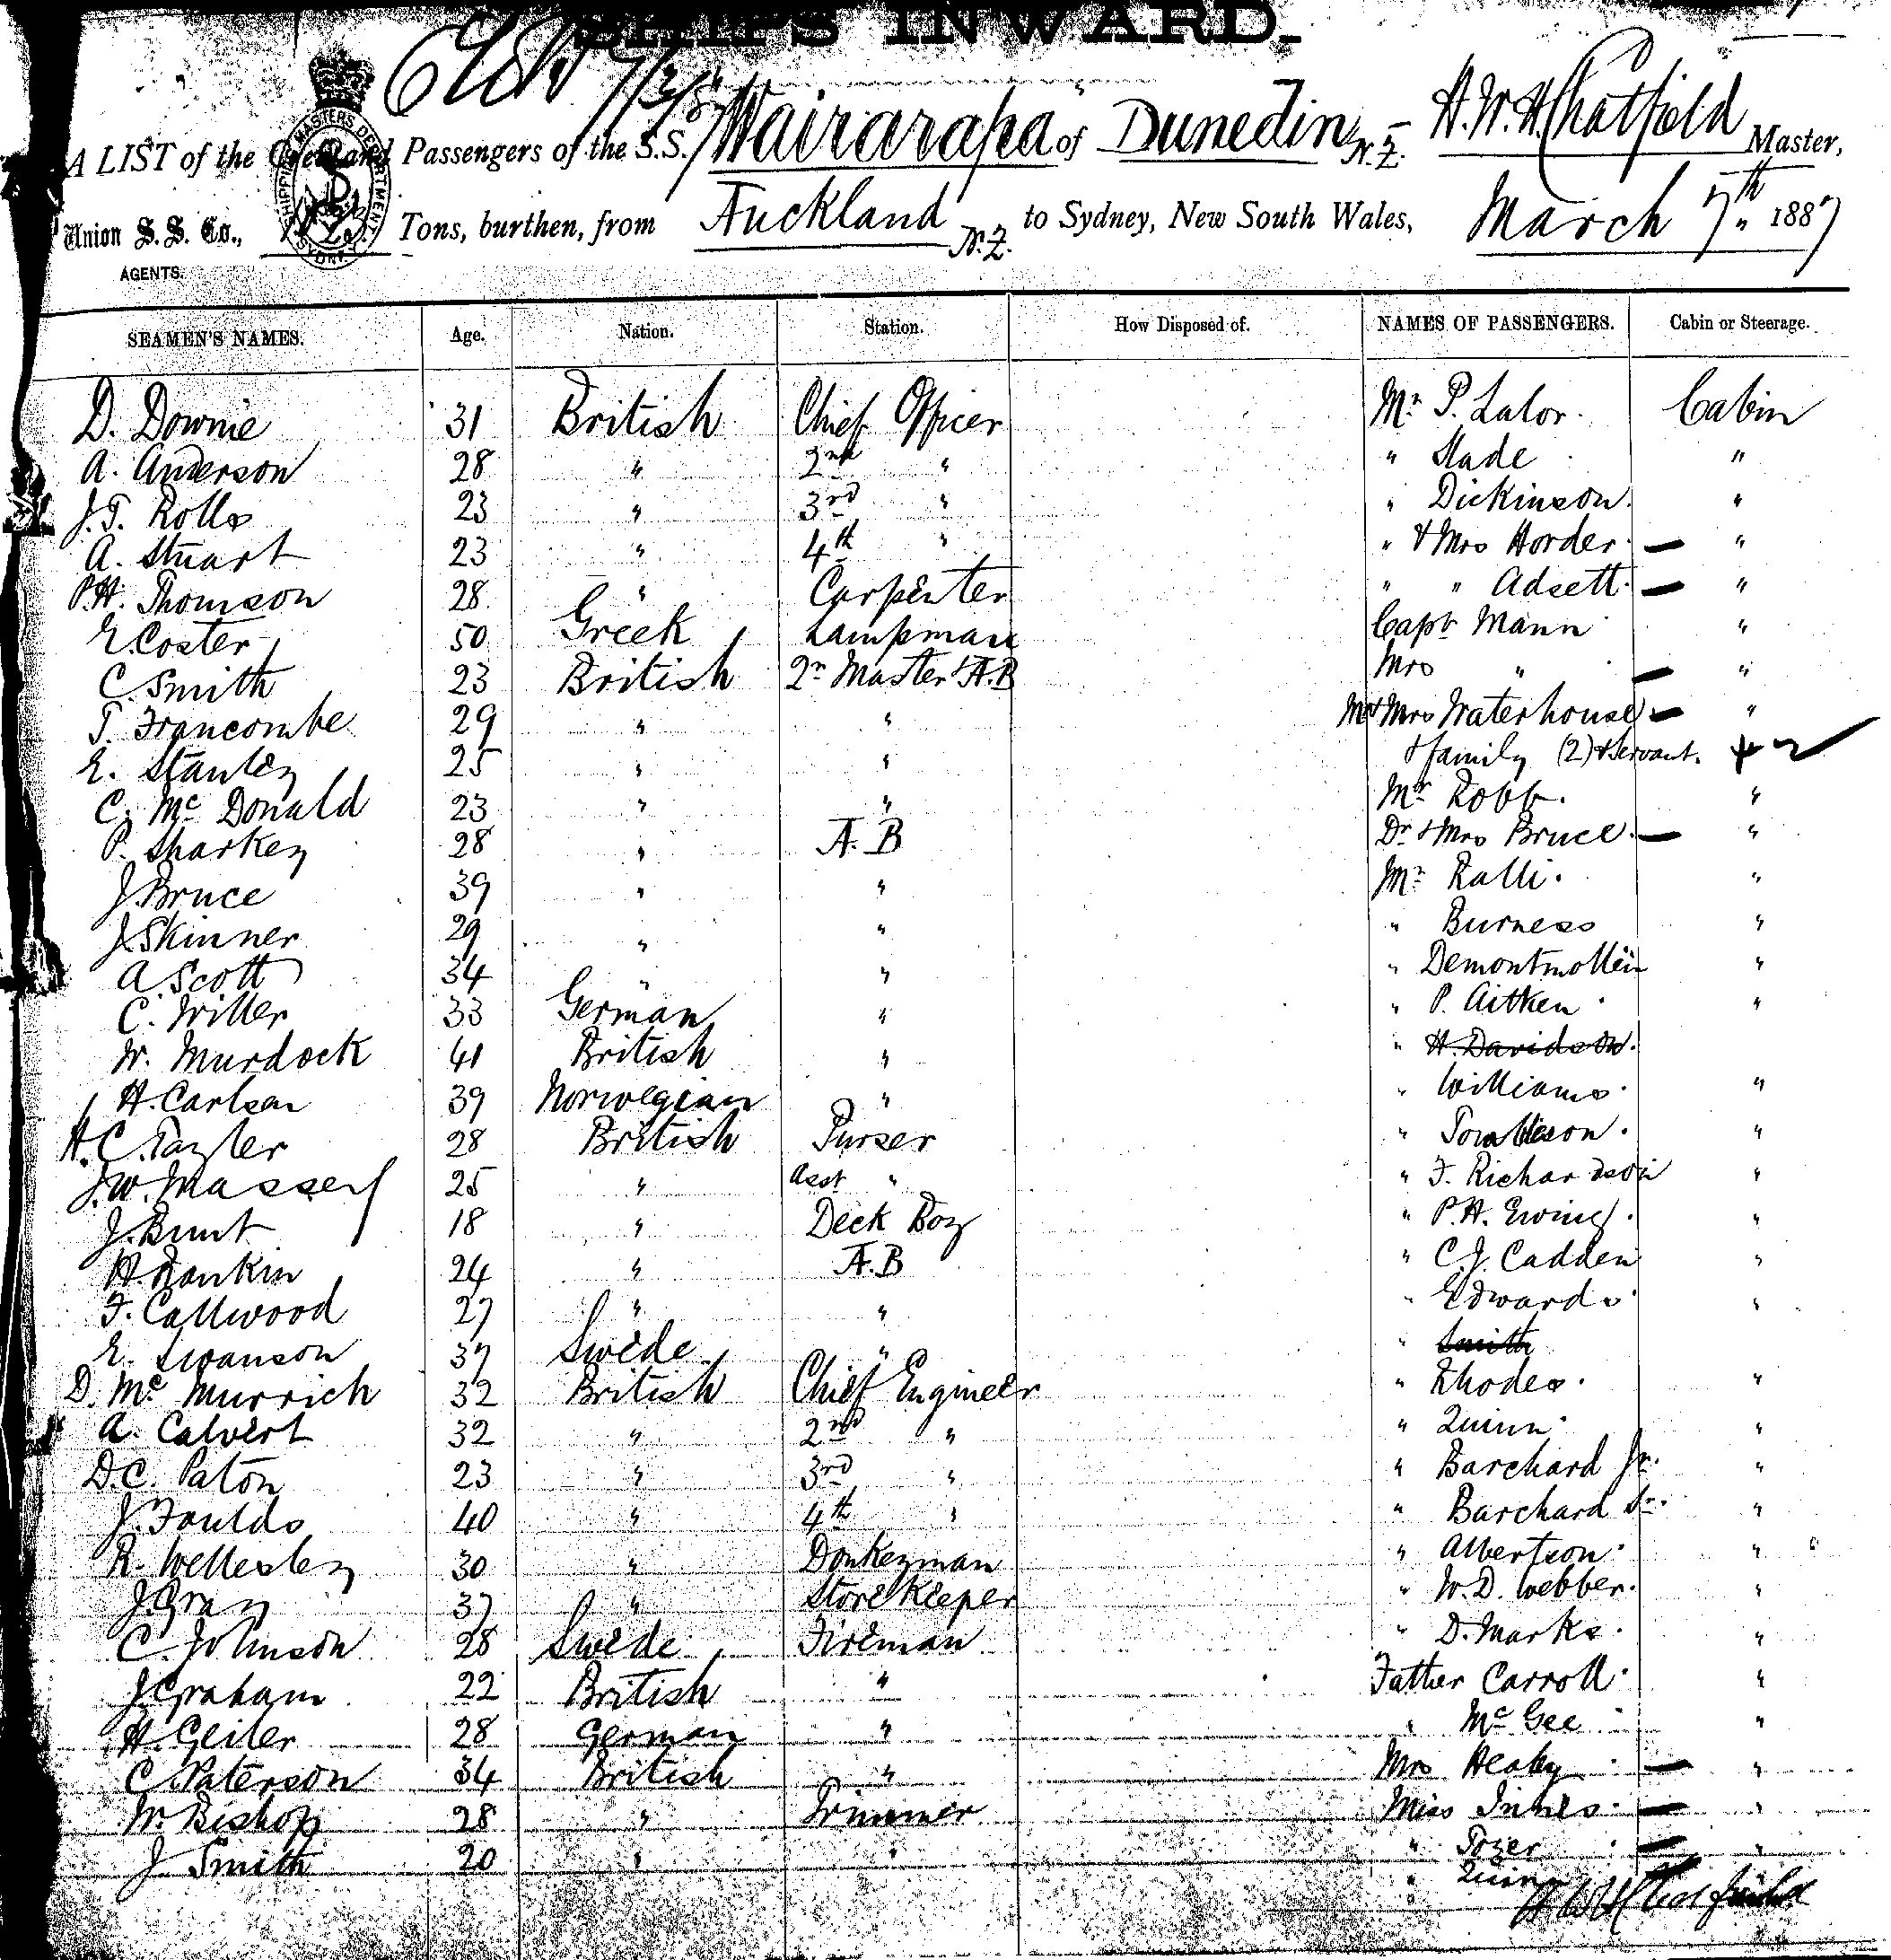 SHIPS INWARD.
A LIST of the Crew and Passengers of the S.S. Wairarapa of Dunedin N.Z. H.W.H. Chatfield Master,
Union S. S. Co., Tons, burthen, from Auckland N.Z. to Sydney, New South Wales, March 7th 1887
AGENTS.
SHIPPING MASTERS DEPARTMENT SYDNEY
SEAMEN'S NAMES. Age. Nation. Station. How Disposed of. NAMES OF PASSENGERS. Cabin or Steerage.
D. Downie 31 British Chief Officer Mr P. Lalor. Cabin
A. Anderson 28 " 2nd " " Slade "
J.T. Rolls 23 " 3rd " " Dickinson. "
A. Stuart 23 " 4th " " & Mrs Horder. — "
P.H. Thomson 28 " Carpenter " " Adsett. — "
E. Coster 50 Greek Lampman Capt Mann "
C. Smith 23 British Qr Master & A.B Mrs " — "
T. Francombe 29 " " Mr & Mrs Waterhouse — "
E. Stanley 25 " " & family (2) & servant.
C. Mc Donald 23 " " Mr Robb. "
P. Sharkey 28 " A.B Dr & Mrs Bruce. — "
J. Bruce 39 " " Mr Ralli. "
J. Skinner 29 " " " Burness "
A. Scott 34 " " " Demontmollin "
C. Willer 33 German " " P. Aitken "
W. Murdock 41 British " " H. Davidson.
H. Carlsen 39 Norwegian " " Williams. "
H.C. Tayler 28 British Purser " "
J.W. Massey 25 " Asst " " F. Richardson "
J. Bunt 18 " Deck Boy " P.H. Ewing. "
H Rankin 24 " A.B " C.J. Cadden "
F. Callwood 27 " " " Edwards. "
E. Swanson 37 Swede " " Smith
D. Mc Murrich 32 British Chief Engineer " Rhodes. "
A. Calvert 32 " 2nd " " Quinn. "
D.C. Paton 23 " 3rd " " Barchard Jr. "
J. Foulds 40 " 4th " " Barchard Sr. "
R. Wellesley 30 " Donkeyman " Albertson. "
J. Gray 37 " Storekeeper " W.D. Webber. "
C. Johnson 28 Swede Fireman " D. Marks. "
J. Graham 22 British " Father Carroll. "
H. Geiler 28 German " " Mc Gee "
C. Paterson 34 British " Mrs Heaby — "
W. Bishop 28 " Trimmer Miss Innes. — "
J. Smith 20 " " " Tozer — "
" Quinn
H W H Chatfield